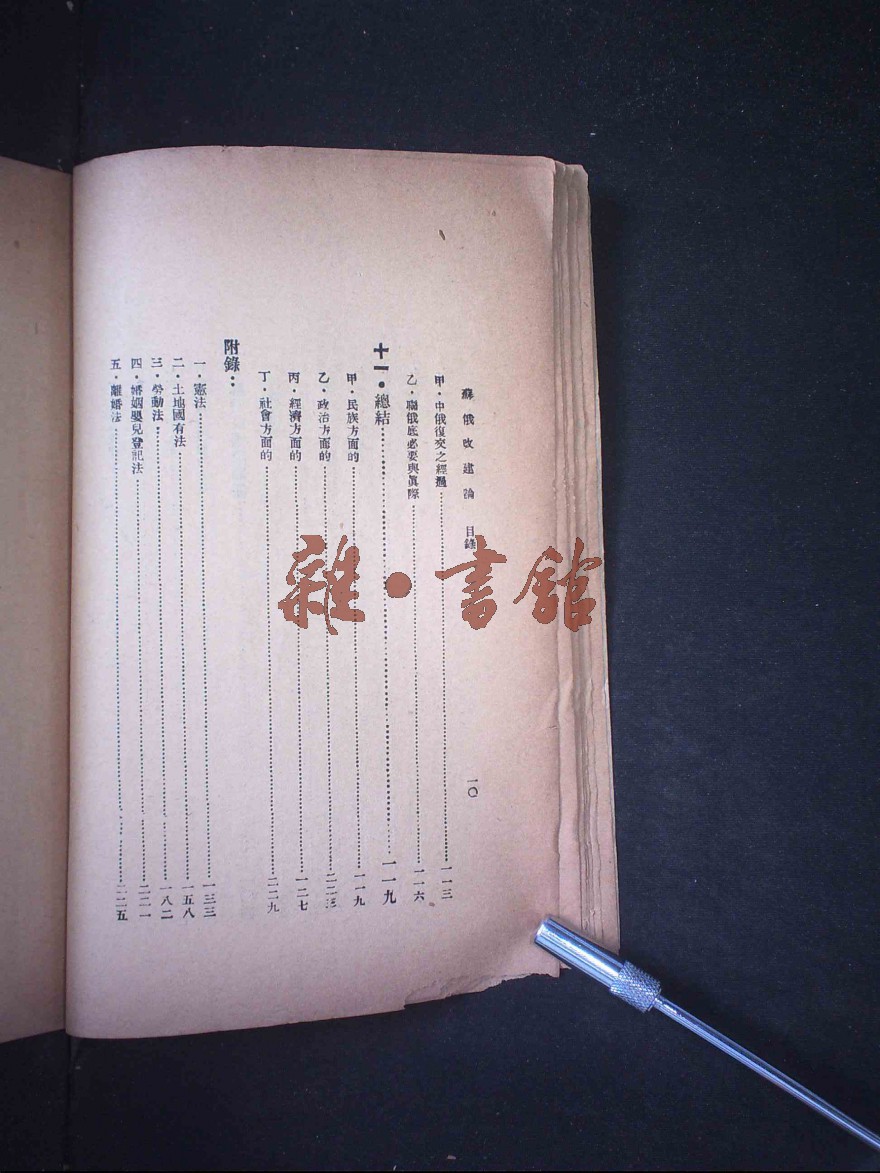 蘇俄改建論 目錄 一〇
甲·中俄復交之經過……一一三
乙·聯俄底必要與眞際……一一六
十一·總結……一一九
甲·民族方面的……一一九
乙·政治方面的……二二三
丙·經濟方面的……一二七
丁·社會方面的……二二九
附錄:
一·憲法……一三三
二·土地國有法……一五八
三·勞動法……一八二
四·婚姻嬰兒登記法……二二一
五·離婚法……二二五
雜·書館